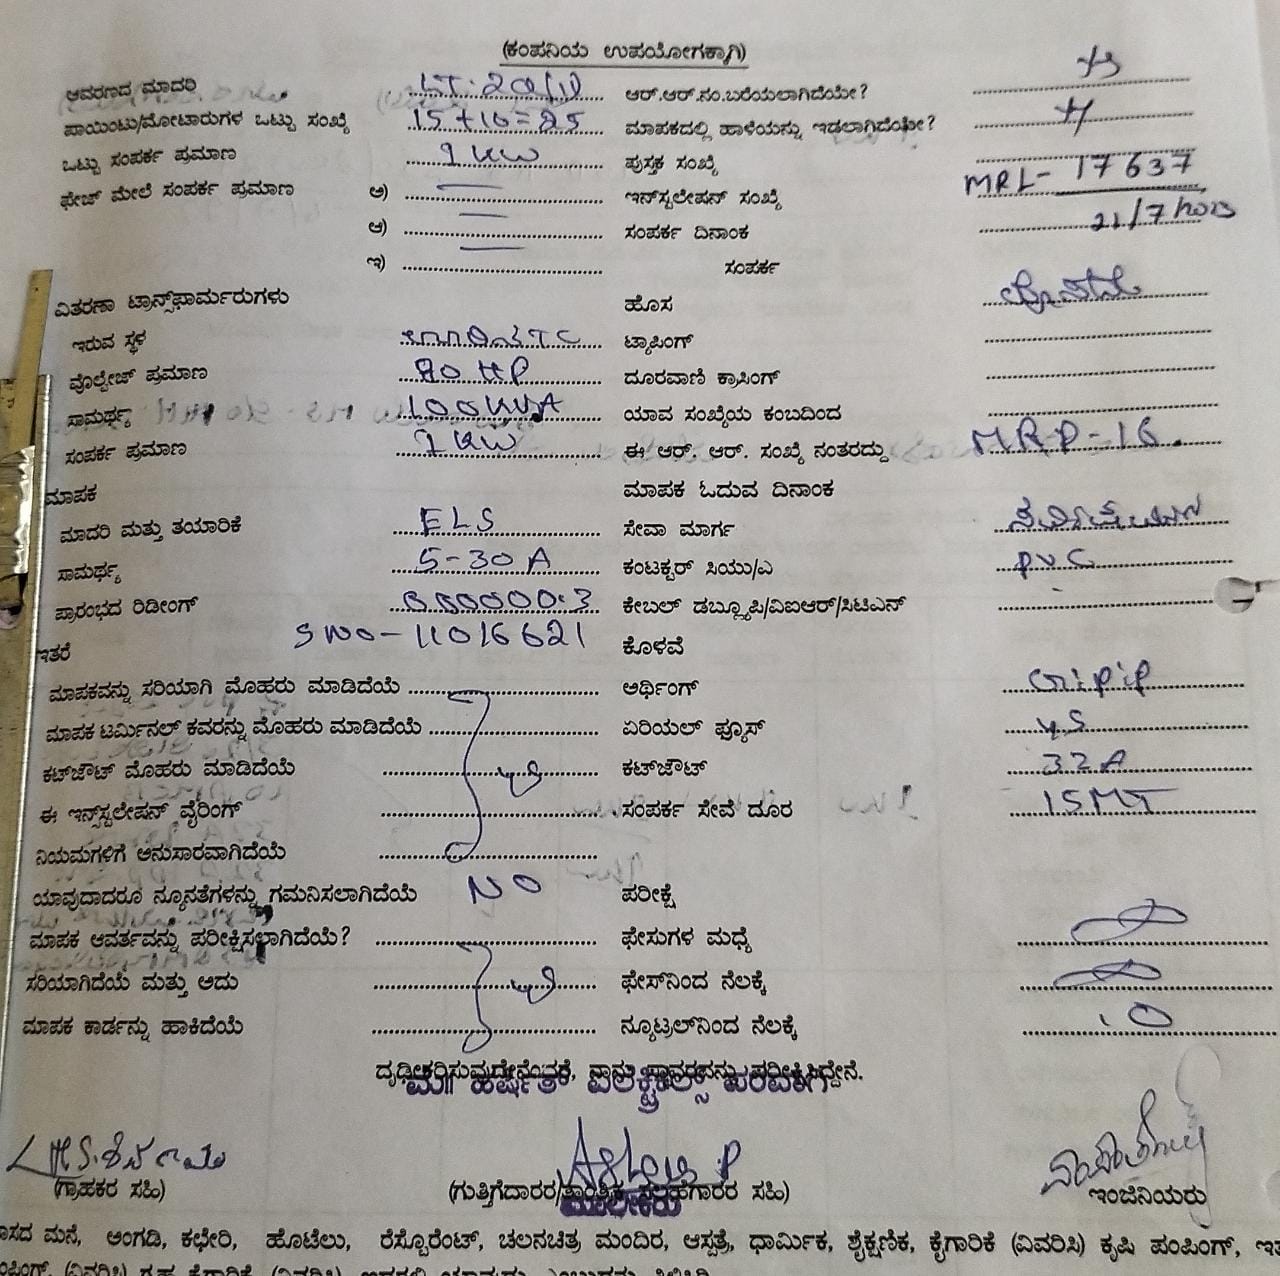 (ಕಂಪನಿಯ ಉಪಯೋಗಕ್ಕಾಗಿ)
ಆವರಣದ ಮಾದರಿ ಆರ್.ಆರ್.ನಂ.ಬರೆಯಲಾಗಿದೆಯೇ?
ಪಾಯಿಂಟು/ಮೋಟಾರುಗಳ ಒಟ್ಟು ಸಂಖ್ಯೆ 15+10=25 ಮಾಪಕದಲ್ಲಿ ಹಾಳೆಯನ್ನು ಇಡಲಾಗಿದೆಯೇ?
ಒಟ್ಟು ಸಂಪರ್ಕ ಪ್ರಮಾಣ 1 KW ಪುಸ್ತಕ ಸಂಖ್ಯೆ
ಫೇಜ್ ಮೇಲೆ ಸಂಪರ್ಕ ಪ್ರಮಾಣ ಅ) ಇನ್‌ಸ್ಟಲೇಷನ್ ಸಂಖ್ಯೆ MRL-17637
ಆ) ಸಂಪರ್ಕ ದಿನಾಂಕ 21/7/2023
ಇ) ಸಂಪರ್ಕ
ವಿತರಣಾ ಟ್ರಾನ್ಸ್‌ಫಾರ್ಮರುಗಳು ಹೊಸ
ಇರುವ ಸ್ಥಳ ಟ್ಯಾಪಿಂಗ್
ವೋಲ್ಟೇಜ್ ಪ್ರಮಾಣ ದೂರವಾಣಿ ಕ್ರಾಸಿಂಗ್
ಸಾಮರ್ಥ್ಯ 100KVA ಯಾವ ಸಂಖ್ಯೆಯ ಕಂಬದಿಂದ
ಸಂಪರ್ಕ ಪ್ರಮಾಣ 1 KW ಈ ಆರ್. ಆರ್. ಸಂಖ್ಯೆ ನಂತರದ್ದು MRP-16.
ಮಾಪಕ ಮಾಪಕ ಓದುವ ದಿನಾಂಕ
ಮಾದರಿ ಮತ್ತು ತಯಾರಿಕೆ ELS ಸೇವಾ ಮಾರ್ಗ
ಸಾಮರ್ಥ್ಯ 5-30A ಕಂಟಕ್ಟರ್ ಸಿಯು/ಎ PVC
ಪ್ರಾರಂಭದ ರಿಡೀಂಗ್ 000000.3 ಕೇಬಲ್ ಡಬ್ಲ್ಯೂಪಿ/ವಿಐಆರ್/ಸಿಟಿಎಸ್
ಇತರೆ SNO-11016621 ಕೊಳವೆ
ಮಾಪಕವನ್ನು ಸರಿಯಾಗಿ ಮೊಹರು ಮಾಡಿದೆಯೆ ಅರ್ಥಿಂಗ್ GIPIP
ಮಾಪಕ ಟರ್ಮಿನಲ್ ಕವರನ್ನು ಮೊಹರು ಮಾಡಿದೆಯೆ ಏರಿಯಲ್ ಫ್ಯೂಸ್
ಕಟ್‌ಔಟ್ ಮೊಹರು ಮಾಡಿದೆಯೆ ಕಟ್‌ಔಟ್ 32A
ಈ ಇನ್‌ಸ್ಟಲೇಷನ್ ವೈರಿಂಗ್ ಸಂಪರ್ಕ ಸೇವೆ ದೂರ 15MT
ನಿಯಮಗಳಿಗೆ ಅನುಸಾರವಾಗಿದೆಯೆ
ಯಾವುದಾದರೂ ನ್ಯೂನತೆಗಳನ್ನು ಗಮನಿಸಲಾಗಿದೆಯೆ NO ಪರೀಕ್ಷೆ
ಮಾಪಕ ಆವರ್ತವನ್ನು ಪರೀಕ್ಷಿಸಲಾಗಿದೆಯೆ? ಫೇಸುಗಳ ಮಧ್ಯೆ
ಸರಿಯಾಗಿದೆಯೆ ಮತ್ತು ಅದು ಫೇಸ್‌ನಿಂದ ನೆಲಕ್ಕೆ
ಮಾಪಕ ಕಾರ್ಡನ್ನು ಹಾಕಿದೆಯೆ ನ್ಯೂಟ್ರಲ್‌ನಿಂದ ನೆಲಕ್ಕೆ
ದೃಢೀಕರಿಸುವುದೇನೆಂದರೆ, ನಾನು ಸ್ಥಾವರವನ್ನು ಪರೀಕ್ಷಿಸಿದ್ದೇನೆ.
ಮೆ॥ ಹರ್ಷಿತ ಎಲೆಕ್ಟ್ರಿಕಲ್ಸ್ ಪರವಾಗಿ
(ಗ್ರಾಹಕರ ಸಹಿ) (ಗುತ್ತಿಗೆದಾರರ/ತಾಂತ್ರಿಕ ಸಲಹೆಗಾರರ ಸಹಿ) ಇಂಜಿನಿಯರು
ಮಾಲೀಕರು
ಮನೆ, ಅಂಗಡಿ, ಕಛೇರಿ, ಹೊಟೆಲು, ರೆಸ್ಟೊರೆಂಟ್, ಚಲನಚಿತ್ರ ಮಂದಿರ, ಆಸ್ಪತ್ರೆ, ಧಾರ್ಮಿಕ, ಶೈಕ್ಷಣಿಕ, ಕೈಗಾರಿಕೆ (ವಿವರಿಸಿ) ಕೃಷಿ ಪಂಪಿಂಗ್,